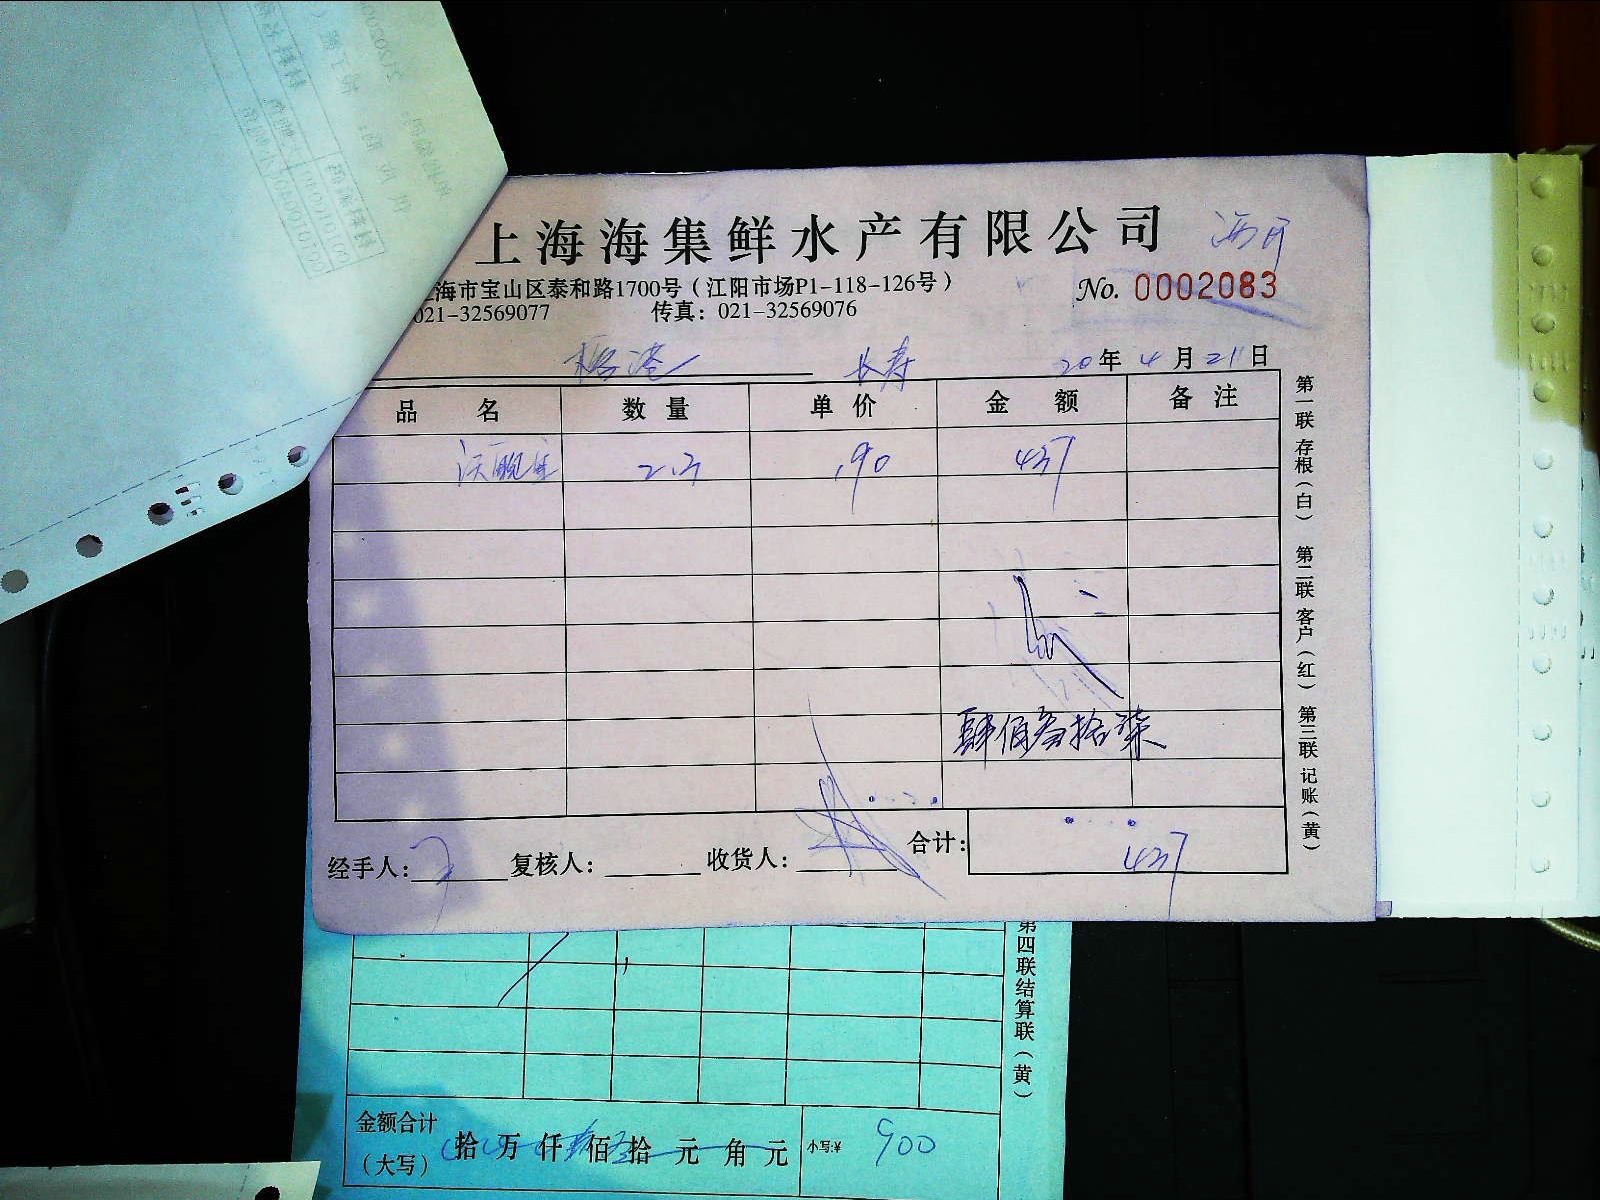 上海海集鲜水产有限公司
海市宝山区泰和路1700号（江阳市场P1-118-126号）
No. 0002083
021-32569077 传真：021-32569076
长寿 20年4月21日
品名 数量 单价 金额 备注
2.3 190 437
肆佰叁拾柒
经手人： 复核人： 收货人： 合计： 437
第一联 存根（白） 第二联 客户（红） 第三联 记账（黄）
第四联结算联（黄）
金额合计
（大写）
拾万仟佰拾元角元 小写:¥ 900